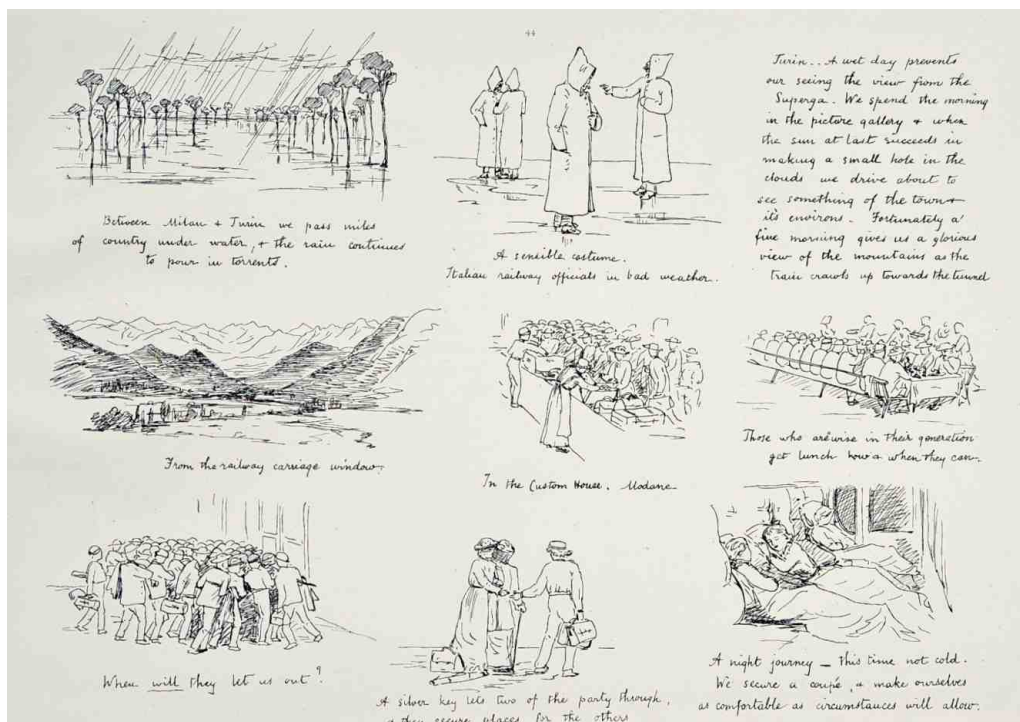 44
Between Milan & Turin we pass miles
of country under water, & the rain continues
to pour in torrents.
A sensible costume.
Italian railway officials in bad weather.
Turin.. A wet day prevents
our seeing the view from the
Superga. We spend the morning
in the picture gallery & when
the sun at last succeeds in
making a small hole in the
clouds we drive about to
see something of the town &
it's environs. Fortunately a
fine morning gives us a glorious
view of the mountains as the
train crawls up towards the tunnel
From the railway carriage window.
In the Custom House. Modane
Those who are wise in their generation
get lunch how & when they can.
When will they let us out?
A silver key lets two of the party through,
& they secure places for the others
A night journey — this time not cold.
We secure a coupé, & make ourselves
as comfortable as circumstances will allow.